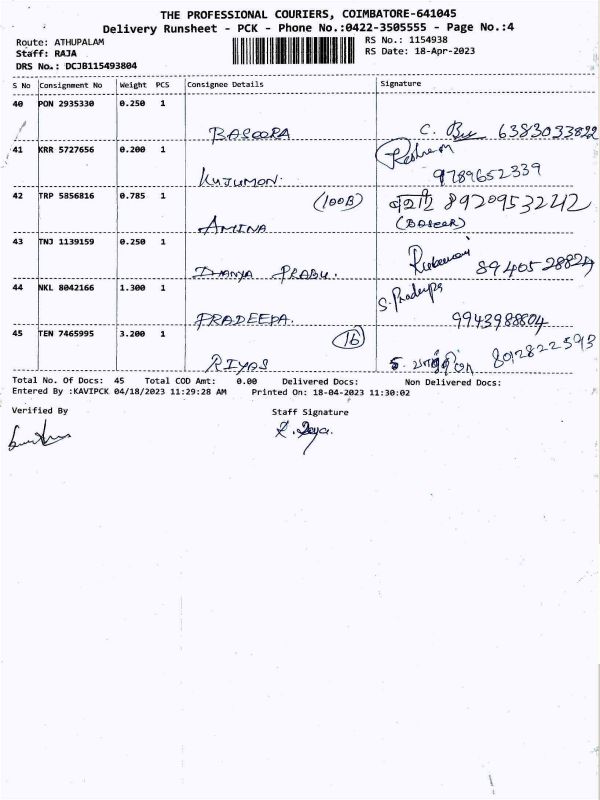 THE PROFESSIONAL COURIERS, COIMBATORE-641045
Delivery Runsheet - PCK - Phone No.:0422-3505555 - Page No.:4
Route: ATHUPALAM RS No.: 1154938
Staff: RAJA RS Date: 18-Apr-2023
DRS No.: DCJB115493804
S No Consignment No Weight PCS Consignee Details Signature
40 PON 2935330 0.250 1
BASOORA C. 6383033822
41 KRR 5727656 0.200 1
KUJUMON. 9789652339
42 TRP 5856816 0.785 1 (100B) 8920953242
AMINA
43 TNJ 1139159 0.250 1
DHANYA PRABU. 8940528824
44 NKL 8042166 1.300 1 S. Pradeepa
PRADEEPA. 9943988804
45 TEN 7465995 3.200 1 16
RIYAS 8012822593
Total No. Of Docs: 45 Total COD Amt: 0.00 Delivered Docs: Non Delivered Docs:
Entered By :KAVIPCK 04/18/2023 11:29:28 AM Printed On: 18-04-2023 11:30:02
Verified By Staff Signature